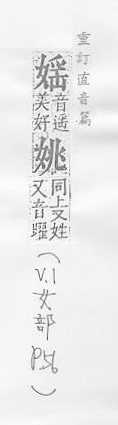 重訂直音篇
媱音遥
美好
姚同上又姓
又音躍
(V.1女部P56)